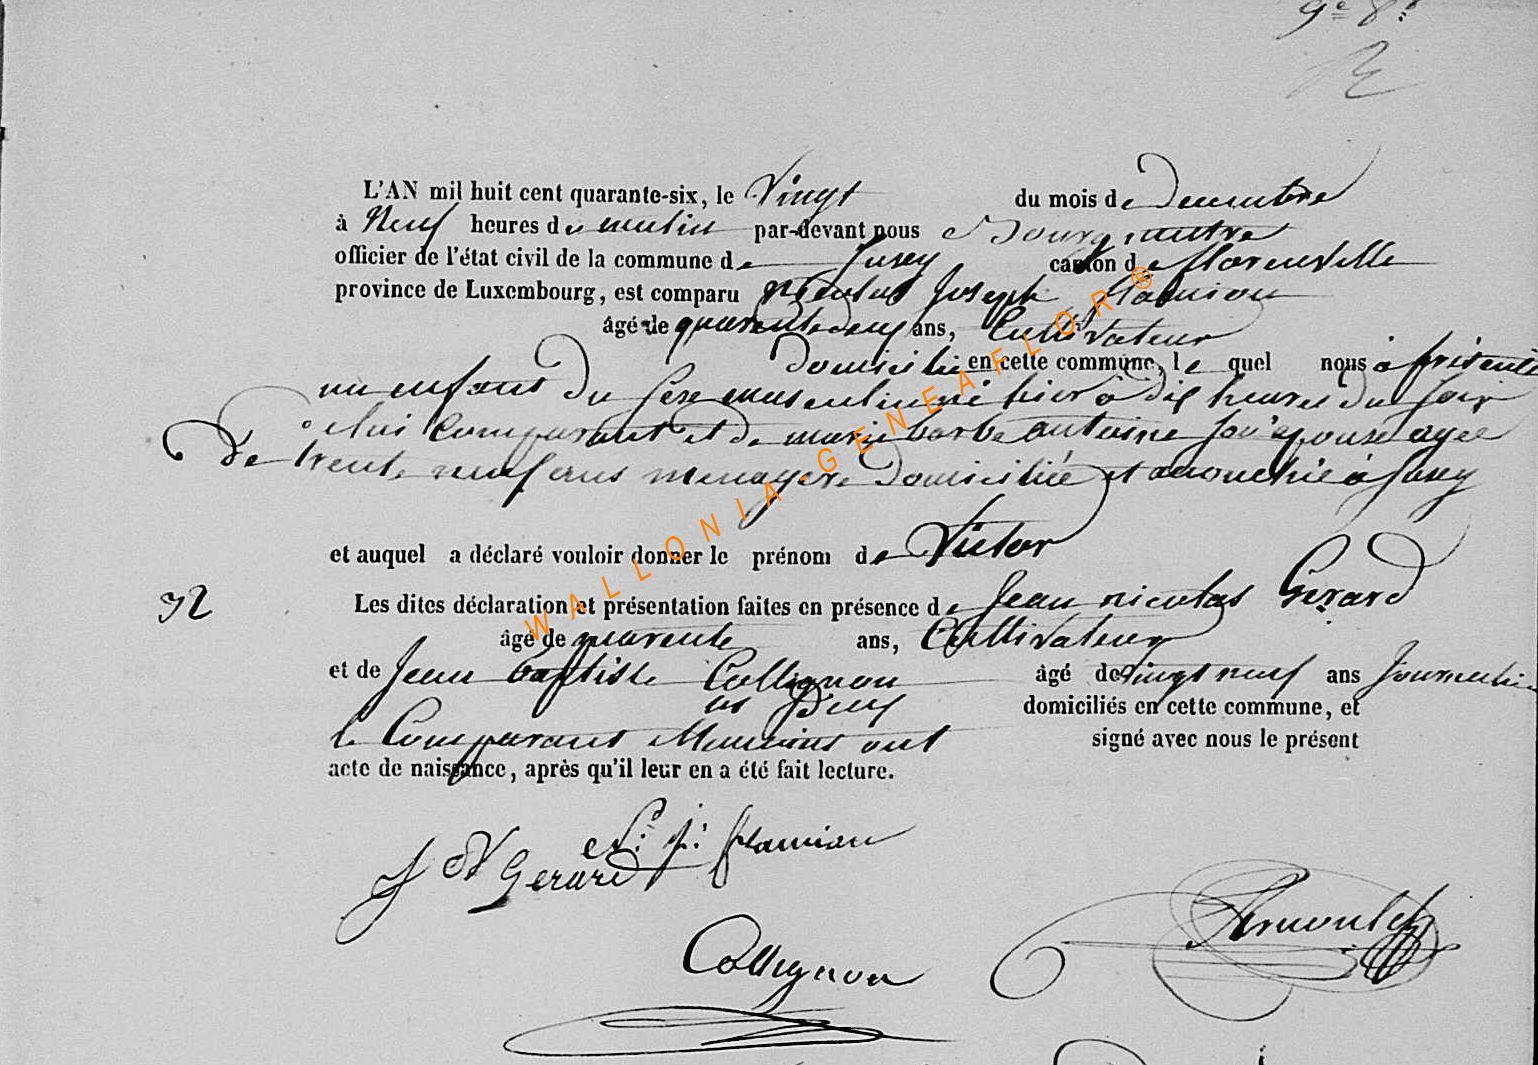 9e 8r
L'AN mil huit cent quarante-six, le Vingt du mois de Decembre
à Neuf heures du matin par-devant nous Bourgmestre
officier de l'état civil de la commune de Jusey canton de florenville
province de Luxembourg, est comparu Nicolas Joseph flamion
âgé de quarente deux ans, Cultivateur
domicilié en cette commune, le quel nous a présenté
un enfant du sexe masculin né hier à dix heures du soir
de lui comparant et de marie barbe antoine son épouse agée
De trente neuf ans menagere domiciliée et accouchée à Jusey
et auquel a déclaré vouloir donner le prénom de Victor
32 Les dites déclaration et présentation faites en présence de Jean nicolas Gerard
âgé de quarente ans, Cultivateur
et de Jean baptiste Collignon âgé de vingt neuf ans Journalier
les Deux domiciliés en cette commune, et
le Comparant temoins ont signé avec nous le présent
acte de naissance, après qu'il leur en a été fait lecture.
N. j. flamion
J N Gerard
Arnould
Collignon
WALLONIA-GENEAFLOR®